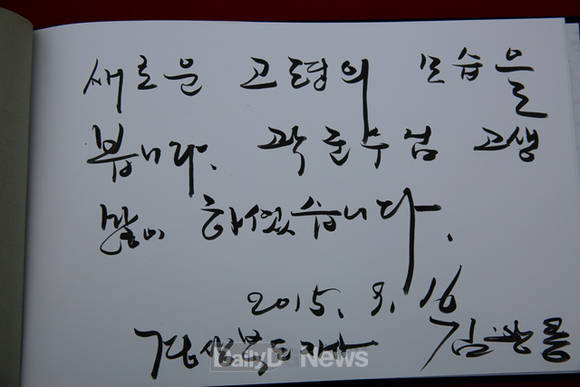 새로운 고령의 모습을
봅니다. 곽준수님 고생
많이 하였습니다.
2015. 9. 16
경상북도지사 김관용
DailyD News